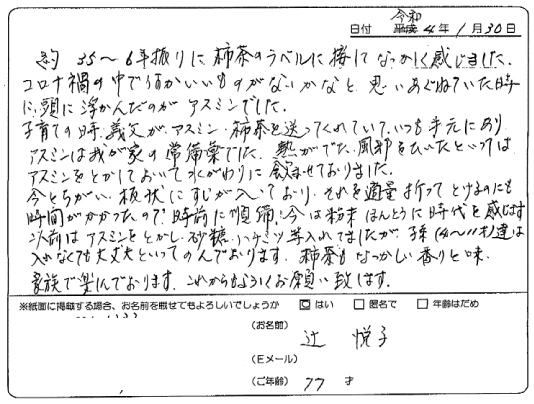 令和
日付 平成 4年 1月 30日
約 35〜6年振りに柿茶のラベルに接してなつかしく感じました。
コロナ禍の中で何かいいものがないかなと、思いあぐねていた時
に、頭に浮かんだのがアスミンでした。
子育ての時、義父がアスミン・柿茶を送ってくれていていつも手元にあり
アスミンは我が家の常備薬でした。熱がでた、風邪をひいたといっては
アスミンをとかしておいて水がわりに飲ませておりました。
今とちがい、板状にすじが入っており、それを適量折ってとけるのにも
時間がかかったので時前に準備、今は粉末 ほんとうに時代を感じます
以前はアスミンをとかし、砂糖、ハチミツ等入れてましたが、孫(4〜11才)達は
入れなくても大丈夫といってのんでおります。柿茶もなつかしい香りと味
家族で楽んでおります。これからもよろしくお願い致します。
※紙面に掲載する場合、お名前を載せてもよろしいでしょうか はい 匿名で 年齢はだめ
(お名前)
辻 悦子
(Eメール)
(ご年齢) 77 才